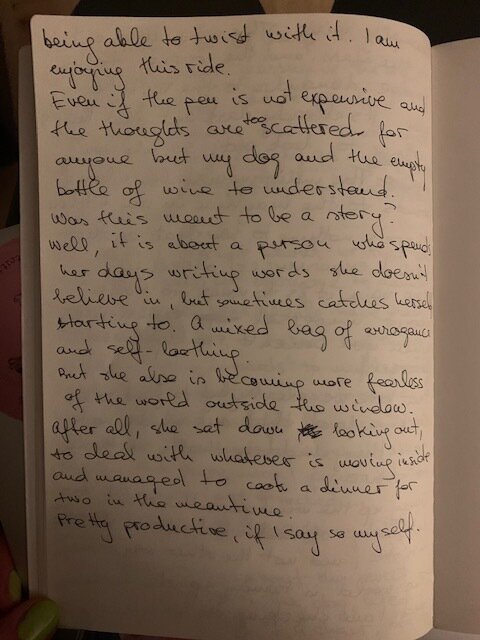 being able to twist with it. I am
enjoying this ride.
Even if the pen is not expensive and
the thoughts are too scattered for
anyone but my dog and the empty
bottle of wine to understand.
Was this meant to be a story?
Well, it is about a person who spends
her days writing words she doesn't
believe in, but sometimes catches herself
starting to. A mixed bag of arrogance
and self-loathing.
But she also is becoming more fearless
of the world outside the window.
After all, she sat down looking out,
to deal with whatever is moving inside
and managed to cook a dinner for
two in the meantime.
Pretty productive, if I say so myself.